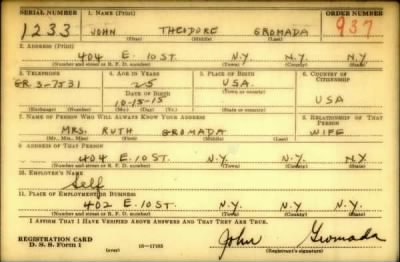 SERIAL NUMBER 1. NAME (Print) ORDER NUMBER
1233 JOHN THEODORE GROMADA 937
(First) (Middle) (Last)
2. ADDRESS (Print)
404 E. 10 ST. N.Y. N.Y. N.Y.
(Number and street or R. F. D. number) (Town) (County) (State)
3. TELEPHONE 4. AGE IN YEARS 5. PLACE OF BIRTH 6. COUNTRY OF CITIZENSHIP
GR. 3-7531 25 USA.
DATE OF BIRTH (Town or county)
10-15-15 USA
(Exchange) (Number) (Mo.) (Day) (Yr.) (State or country)
7. NAME OF PERSON WHO WILL ALWAYS KNOW YOUR ADDRESS 8. RELATIONSHIP OF THAT PERSON
MRS. RUTH GROMADA WIFE
(Mr., Mrs., Miss) (First) (Middle) (Last)
9. ADDRESS OF THAT PERSON
404 E. 10 ST. N.Y. N.Y. N.Y.
(Number and street or R. F. D. number) (Town) (County) (State)
10. EMPLOYER'S NAME
Self
11. PLACE OF EMPLOYMENT OR BUSINESS
402 E. 10 ST. N.Y. N.Y. N.Y.
(Number and street or R. F. D. number) (Town) (County) (State)
I AFFIRM THAT I HAVE VERIFIED ABOVE ANSWERS AND THAT THEY ARE TRUE.
REGISTRATION CARD
D. S. S. FORM 1 (over) 16-17105 John Gromada
(Registrant's signature)